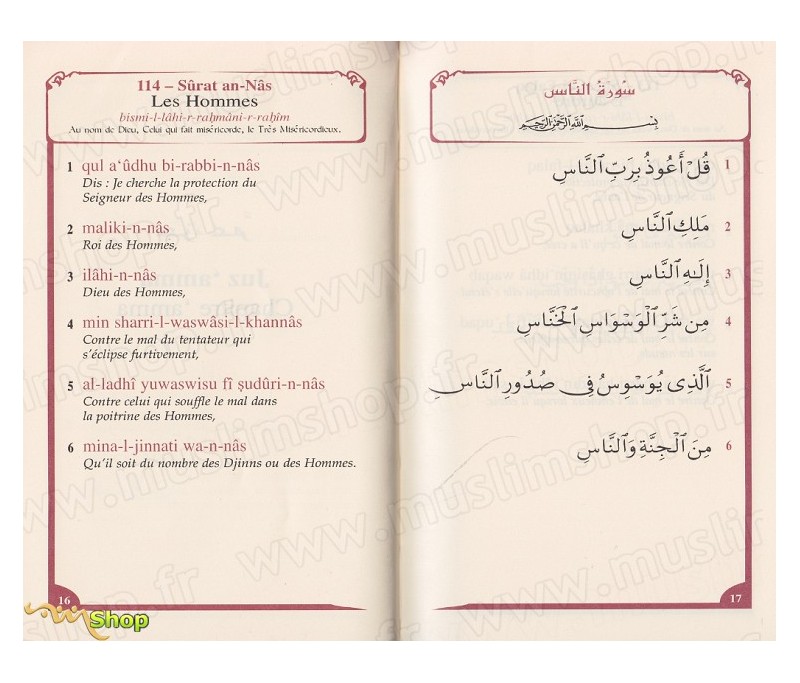 114 – Sûrat an-Nâs
Les Hommes
bismi-l-lâhi-r-raḥmâni-r-raḥîm
Au nom de Dieu, Celui qui fait miséricorde, le Très Miséricordieux.
1 qul a‘ûdhu bi-rabbi-n-nâs
Dis : Je cherche la protection du
Seigneur des Hommes,
2 maliki-n-nâs
Roi des Hommes,
3 ilâhi-n-nâs
Dieu des Hommes,
4 min sharri-l-waswâsi-l-khannâs
Contre le mal du tentateur qui
s’éclipse furtivement,
5 al-ladhî yuwaswisu fî ṣudûri-n-nâs
Contre celui qui souffle le mal dans
la poitrine des Hommes,
6 mina-l-jinnati wa-n-nâs
Qu’il soit du nombre des Djinns ou des Hommes.
16
Shop
سُورَةُ النَّاسِ
بِسْمِ اللَّهِ الرَّحْمَٰنِ الرَّحِيمِ
1 قُلْ أَعُوذُ بِرَبِّ ٱلنَّاسِ
2 مَلِكِ ٱلنَّاسِ
3 إِلَٰهِ ٱلنَّاسِ
4 مِن شَرِّ ٱلْوَسْوَاسِ ٱلْخَنَّاسِ
5 ٱلَّذِى يُوَسْوِسُ فِى صُدُورِ ٱلنَّاسِ
6 مِنَ ٱلْجِنَّةِ وَٱلنَّاسِ
17
www.muslimshop.fr